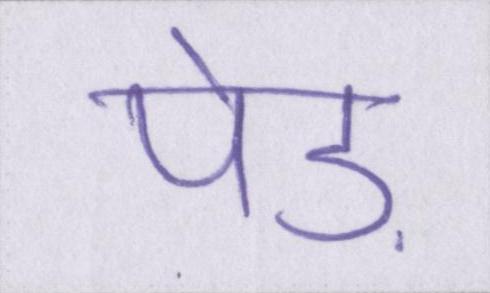 पेड़